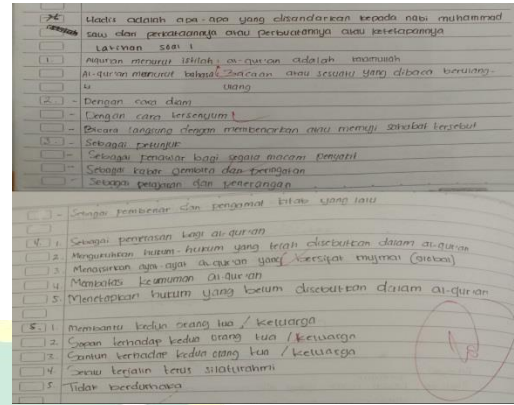 Hadis adalah apa-apa yang disandarkan kepada nabi muhammad
saw dan perkataannya atau perbuatannya atau ketetapannya
Latihan soal 1
1. menurut istilah: al-qur'an adalah
Al-qur'an menurut bahasa: Bacaan atau sesuatu yang dibaca berulang-
ulang
2. - Dengan cara diam
- Dengan cara tersenyum
- Bicara langsung dengan membenarkan atau memuji sahabat tersebut
3. - Sebagai petunjuk
- Sebagai penawar bagi segala macam penyakit
- Sebagai kabar gembira dan peringatan
- Sebagai pelajaran dan penerangan
- Sebagai pembenar dan pengamat kitab yang lalu
4. 1. Sebagai penjelasan bagi al-qur'an
2. Mengukuhkan hukum-hukum yang telah disebutkan dalam al-qur'an
3. Menafsirkan ayat-ayat al-qur'an yang bersifat mujmal (global)
4. Membatasi keumuman al-qur'an
5. Menetapkan hukum yang belum disebutkan dalam al-qur'an
5. 1. Membantu kedua orang tua / keluarga
2. Sopan terhadap kedua orang tua / keluarga
3. Santun terhadap kedua orang tua / keluarga
4. terjalin terus silaturahmi
5. Tidak berdurhaka